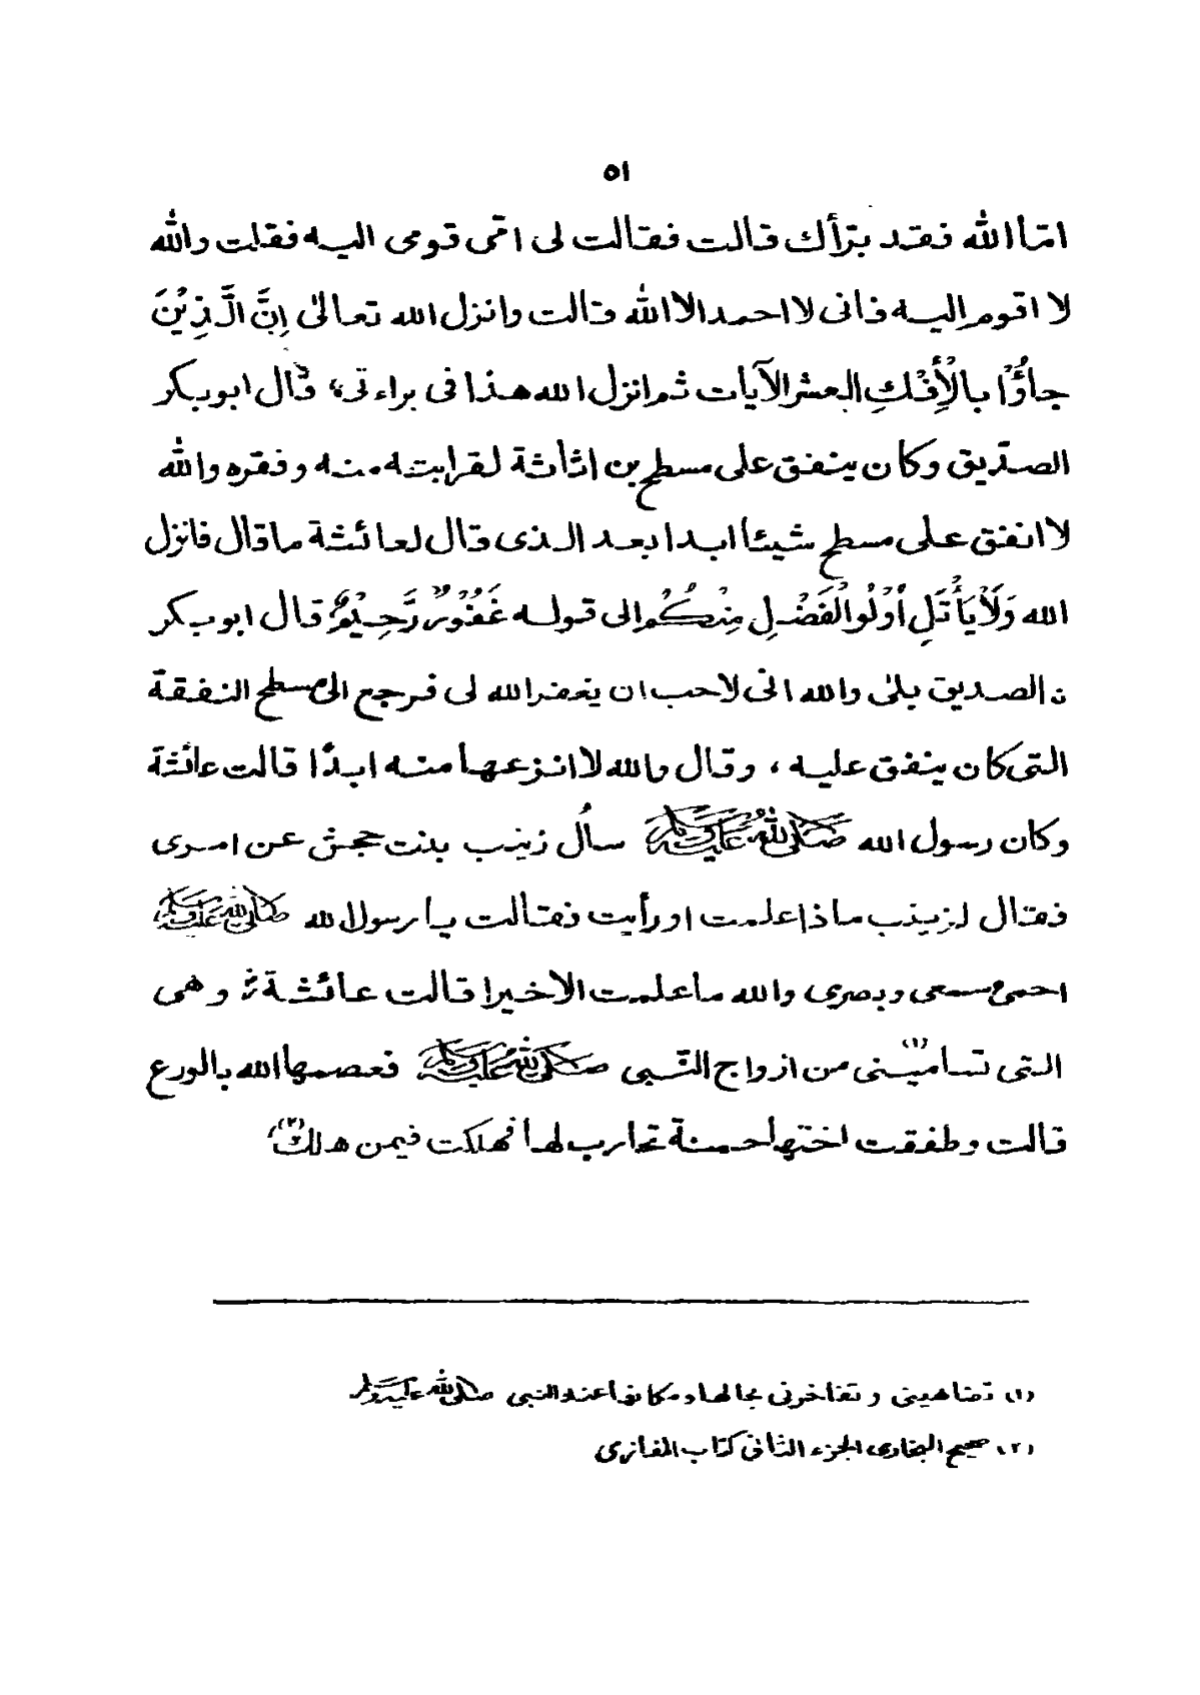 ٥١
امّا الله فقد برّأك قالت فقالت لى امّى قومى اليه فقلت والله
لا اقوم اليه فانى لا احمد الا الله قالت وانزل الله تعالىٰ اِنَّ الَّذِيْنَ
جاؤُا بالْأِفْكِ العشر الآيات ثم انزل الله هذا فى براءتى، قال ابوبكر
الصدّيق وكان ينفق على مسطح بن اثاثة لقرابته منه وفقره والله
لا انفق على مسطح شيئا ابدا بعد الذى قال لعائشة ماقال فانزل
الله وَلَا يَأْتَلِ أُوْلُوا الْفَضْلِ مِنْكُمْ الى قوله غَفُوْرٌ رَّحِيْمٌ قال ابوبكر
ن الصديق بلىٰ والله انى لاحب ان يغفر الله لى فرجع الى مسطح النفقة
التى كان ينفق عليه ، وقال والله لا انزعها منه ابدًا قالت عائشة
وكان رسول الله ﷺ سأل زينب بنت جحش عن امرى
فقال لزينب ماذا علمت او رأيت فقالت يا رسول لله ﷺ
احمى سمعى وبصرى والله ماعلمت الا خيرا قالت عائشة وهى
التى تسامينى(١) من ازواج النّبى ﷺ فعصمها الله بالورع
قالت وطفقت اختها حمنة تحارب لها فهلكت فيمن هلك(٢)
(١) تضاهينى وتفاخرنى بجالها ومكانها عند النبى ﷺ
(٢) صحيح البخارى الجزء الثانى كتاب المغازى